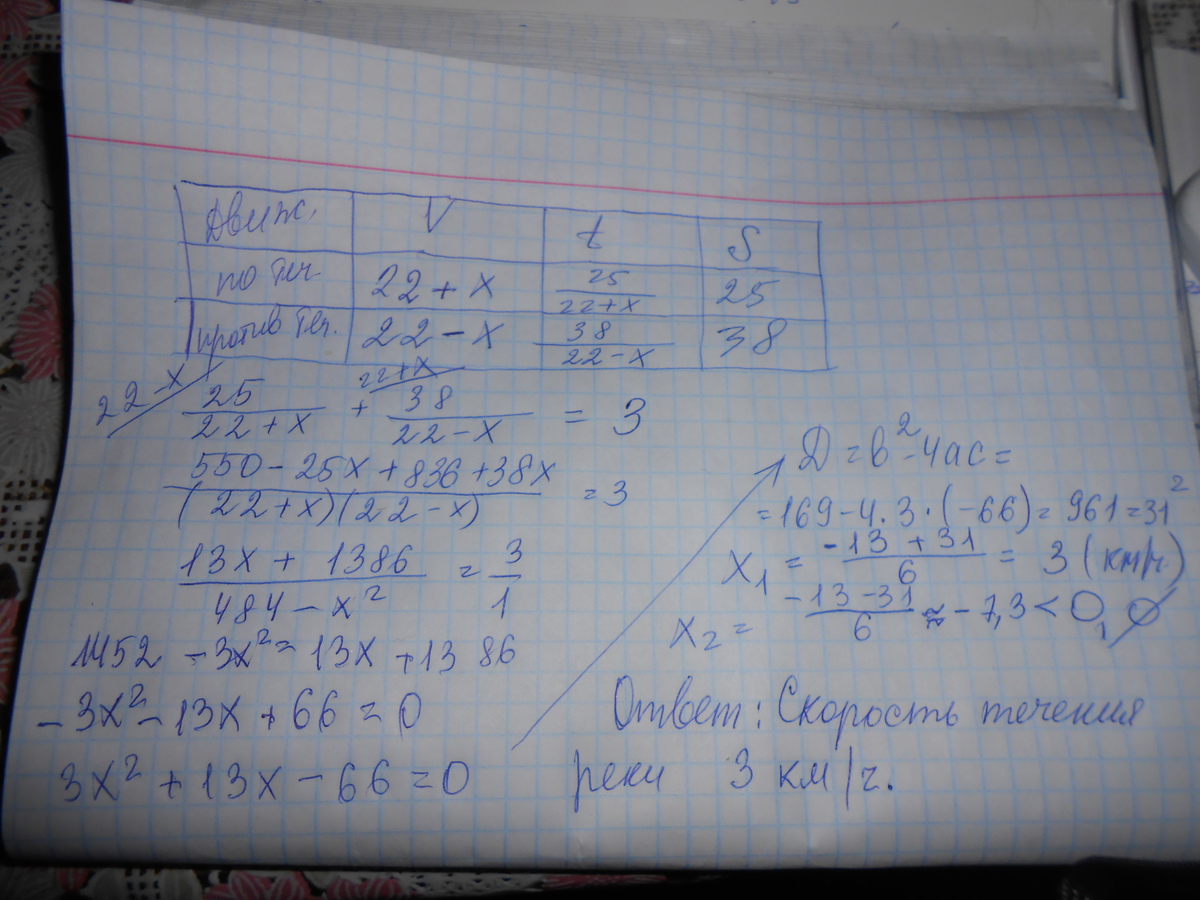 Движ. V t S
по теч. 22 + x 25/(22+x) 25
против теч. 22 - x 38/(22-x) 38
22-x 22+x
25/(22+x) + 38/(22-x) = 3
(550 - 25x + 836 + 38x)/((22+x)(22-x)) = 3
(13x + 1386)/(484 - x²) = 3/1
1452 - 3x² = 13x + 1386
-3x² - 13x + 66 = 0
3x² + 13x - 66 = 0
D = b² - 4ac =
= 169 - 4·3·(-66) = 961 = 31²
x₁ = (-13 + 31)/6 = 3 (км/ч)
x₂ = (-13 - 31)/6 ≈ -7,3 < 0, ∅
Ответ: Скорость течения
реки 3 км/ч.